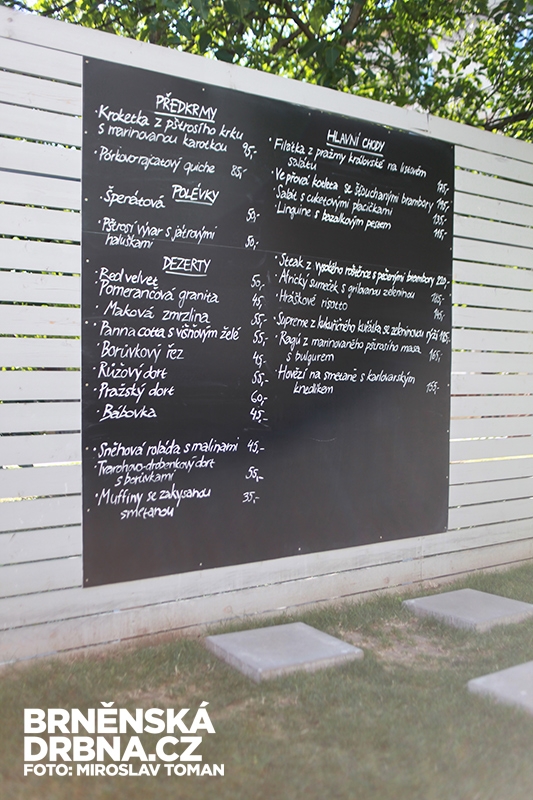 PŘEDKRMY
· Kroketka z pštrosího krku
s marinovanou karotkou 95,-
· Pórkovorajčatový quiche 85,-
POLÉVKY
· Špenátová 50,-
· Pštrosí vývar s játrovými
haluškami 50,-
DEZERTY
· Red velvet 50,-
Pomerančová granita 45,-
· Maková zmrzlina 55,-
· Panna cotta s višňovým želé 55,-
· Borůvkový řez 45,-
· Růžový dort 55,-
· Pražský dort 60,-
· Bábovka 45,-
· Sněhová roláda s malinami 45,-
· Tvarohovo-drobenkový dort
s borůvkami 55,-
· Muffiny se zakysanou 35,-
smetanou
HLAVNÍ CHODY
· Filátka z pražmy královské na listovém
salátu
Vepřová kotleta se šťouchanými brambory
· Salát s cuketovými placičkami
· Linguine s bazalkovým pestem
· Steak z vysokého roštěnce s pečenými brambory 220,-
· Africký sumeček s grilovanou zeleninou
· Hráškové risotto
· Supreme z kukuřičného kuřátka se zeleninovou rýží
· Ragú z marinovaného pštrosího masa
s bulgurem
· Hovězí na smetaně s karlovarským
knedlíkem 155,-
BRNĚNSKÁ
DRBNA.CZ
FOTO: MIROSLAV TOMAN